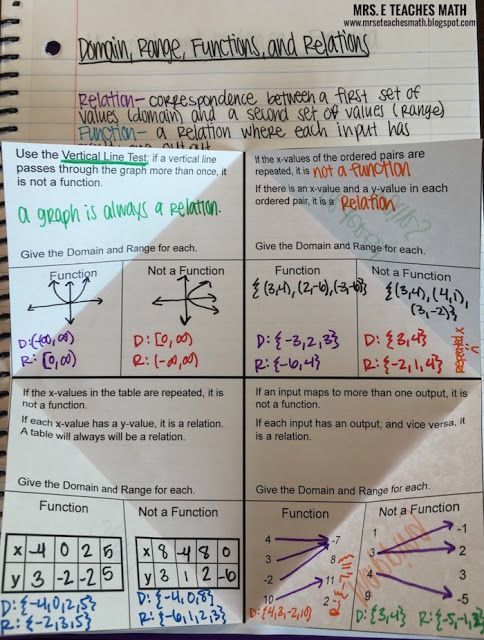 MRS. E TEACHES MATH
www.mrseteachesmath.blogspot.com
Domain, Range, Functions, and Relations
Relation- correspondence between a first set of
values (domain) and a second set of values (range)
Function- a Relation where each input has
Use the Vertical Line Test; if a vertical line
passes through the graph more than once, it
is not a function.
a graph is always a relation.
Give the Domain and Range for each.
Function
Not a Function
D:(-∞,∞)
R: [0,∞)
D: [0,∞)
R: (-∞,∞)
If the x-values of the ordered pairs are
repeated, it is not a function
If there is an x-value and a y-value in each
ordered pair, it is a Relation
Give the Domain and Range for each.
Function
Not a Function
{(3,4), (2,-6), (-3,-6)}
{(3,4), (4,1),
(3,-2)}
D: {-3,2,3}
R: {-6,4}
D: {3,4}
R: {-2,1,4}
Repeated x
If the x-values in the table are repeated, it is
not a function.
If each x-value has a y-value, it is a relation.
A table will always will be a relation.
Give the Domain and Range for each.
Function
Not a Function
x -4 0 2 5
y 3 -2 -2 5
x 8 -4 8 0
y 3 1 2 -6
D: {-4,0,2,5}
R: {-2,3,5}
D: {-4,0,8}
R: {-6,1,2,3}
If an input maps to more than one output, it is
not a function.
If each input has an output, and vice versa, it
is a relation.
Give the Domain and Range for each.
Function
Not a Function
4 -7
3 8
-2 11
10 2
D: {4,3,-2,10}
1 -1
3 -2
4 3
9 -5
D: {3,4}
R: {-5,-1,